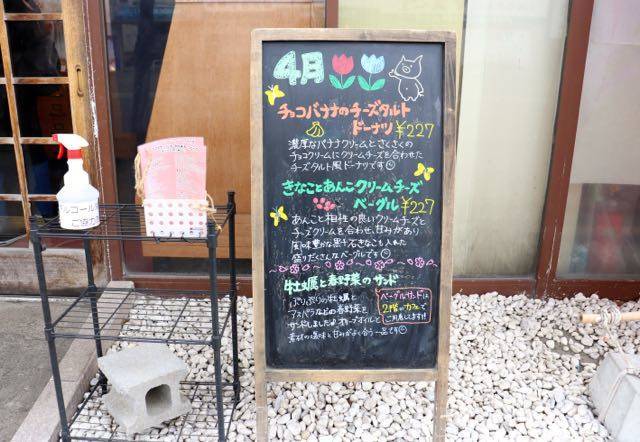 4月
チョコバナナのチーズタルト
ドーナツ ¥227
濃厚なバナナクリームとさくさくの
チョコクリームにクリームチーズを合わせた
チーズタルト風ドーナツです
きなことあんこクリームチーズ
ベーグル ¥227
あんこと相性の良いクリームチーズと
チーズクリームを合わせ、甘みがあり
風味豊かな黒千石きなこも入れた
盛りだくさんなベーグルです
牡蠣と春野菜のサンド
ぷりぷりの牡蠣と
アスパラなどの春野菜を
サンドしました♪オリーブオイルと
素材の塩味と甘みがよく合う一品です
ベーグルサンドは
2階のカフェで
ご用意します!!
アルコール
ご協力